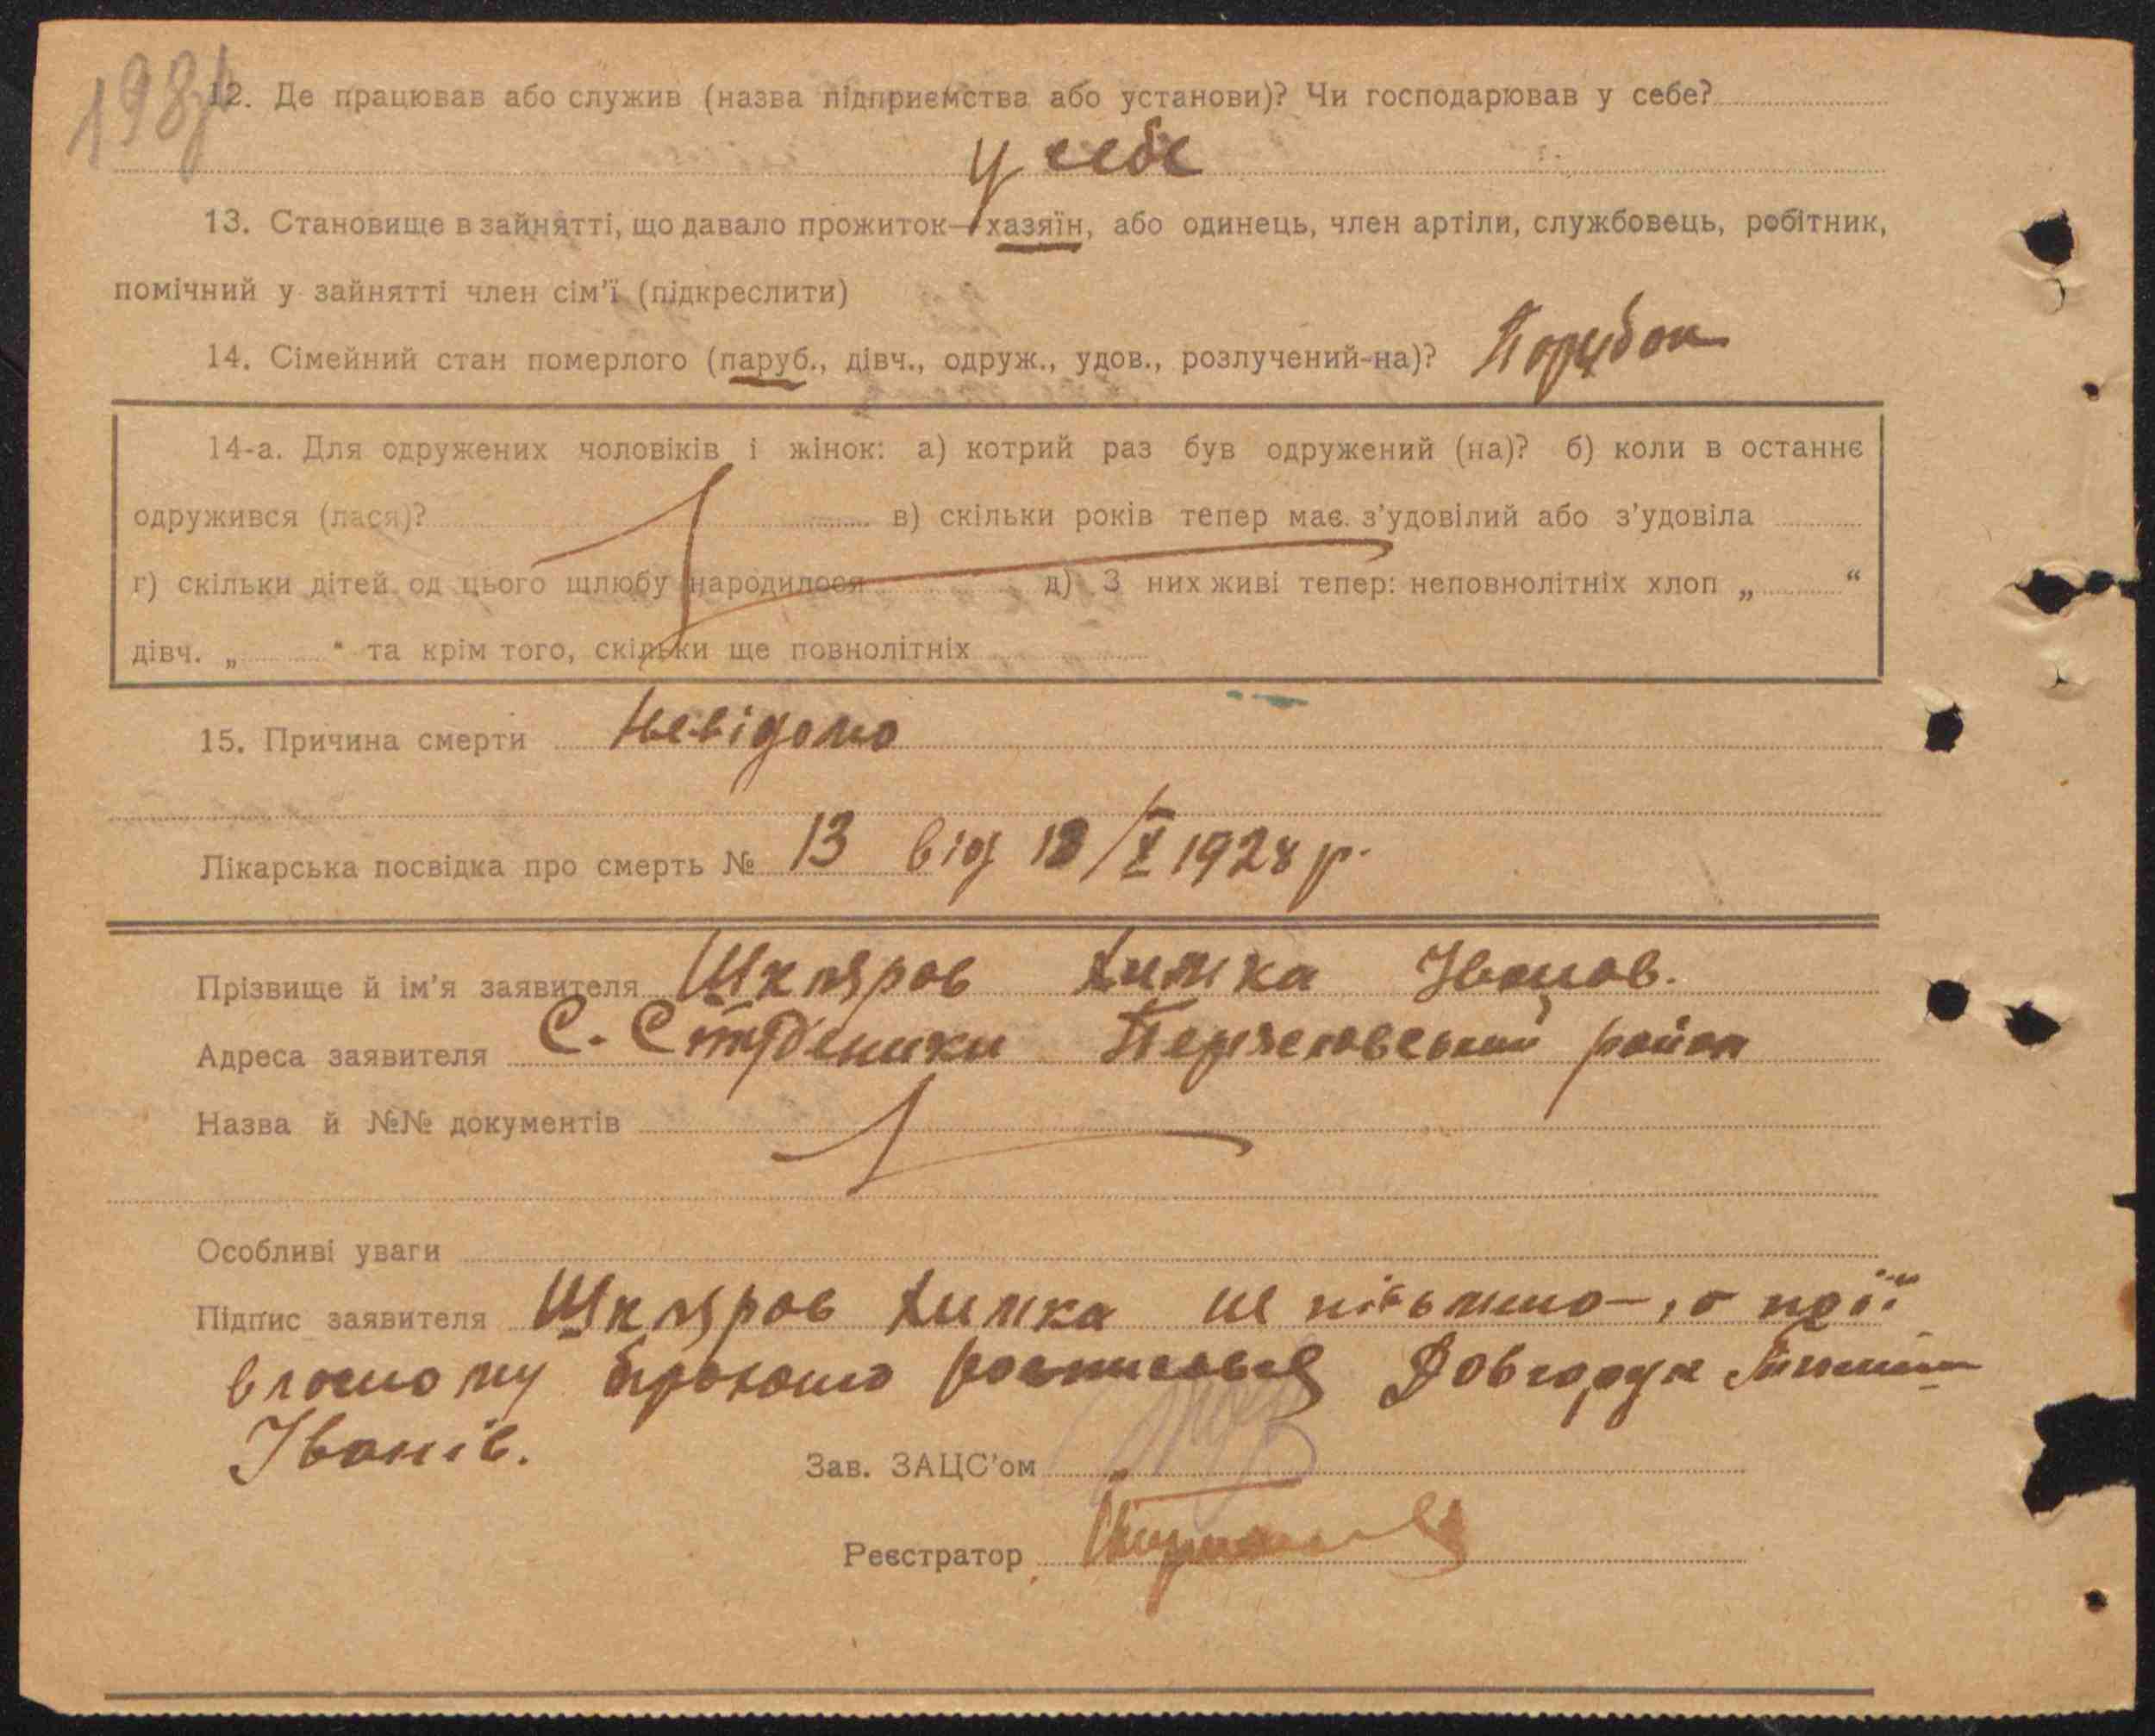 198
12. Де працював або служив (назва підприємства або установи)? Чи господарював у себе?
у себе
13. Становище в зайнятті, що давало прожиток—хазяїн, або одинець, член артіли, службовець, робітник,
помічний у зайнятті член сім'ї (підкреслити)
14. Сімейний стан померлого (паруб., дівч., одруж., удов., розлучений-на)? Парубок
14-а. Для одружених чоловіків і жінок: а) котрий раз був одружений (на)? б) коли в останнє
одружився (лася)? в) скільки років тепер має з'удовілий або з'удовіла
г) скільки дітей од цього шлюбу народилося д) З них живі тепер: неповнолітніх хлоп „ “
дівч. „ “ та крім того, скільки ще повнолітніх
15. Причина смерти Невідомо
Лікарська посвідка про смерть № 13 від 18/X 1928 р.
Прізвище й ім'я заявителя Шкляров Химка Іванов.
Адреса заявителя С. Студеники район
Назва й №№ документів
Особливі уваги
Підпис заявителя Шкляров Химка не
власному розписався Довгорук
Іванів.
Зав. ЗАЦС'ом
Реєстратор